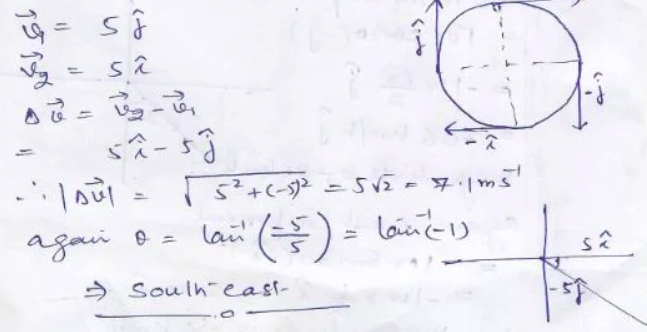 v⃗₁ = 5 ĵ
v⃗₂ = 5 î
Δv⃗ = v⃗₂ - v⃗₁
= 5 î - 5 ĵ
∴ |Δv⃗| = √(5² + (-5)²) = 5√2 = 7.1 ms⁻¹
again θ = tan⁻¹(-5/5) = tan⁻¹(-1)
⇒ South-east
ĵ
-ĵ
-î
5 î
-5 ĵ